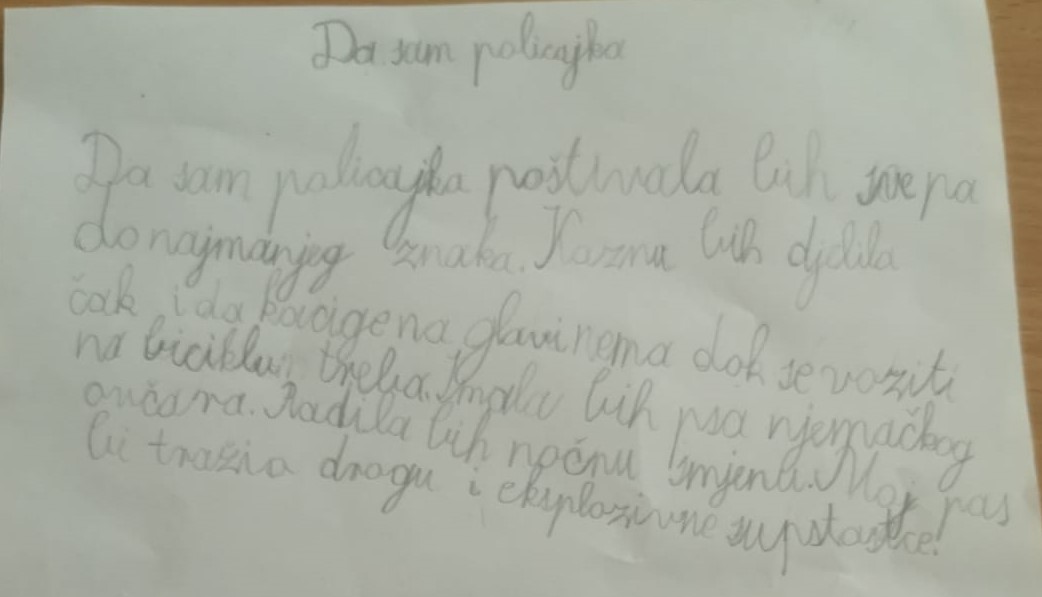 Da sam policajka
Da sam policajka poštivala bih sve pa
do najmanjeg znaka. Kaznu bih djelila
čak i da kacige na glavi nema dok se voziti
na biciklu treba. Imala bih psa njemačkog
ovčara. Radila bih noćnu smjenu. Moj pas
bi tražio drogu i eksplozivne supstastce!